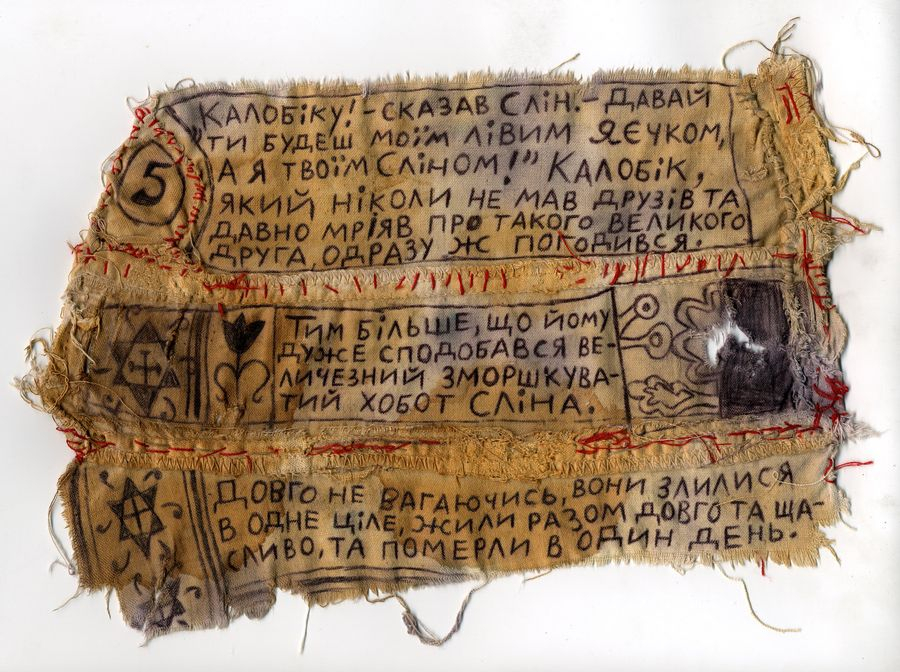 5
„Калобіку! - сказав Слін. - Давай
ти будеш моїм лівим яєчком,
а я твоїм Сліном!” Калобік,
який ніколи не мав друзів та
давно мріяв про такого великого
друга одразу ж погодився.
Тим більше, що йому
дуже сподобався ве-
личезний зморшкува-
тий хобот Сліна.
Довго не вагаючись, вони злилися
в одне ціле, жили разом довго та ща-
сливо, та померли в один день.